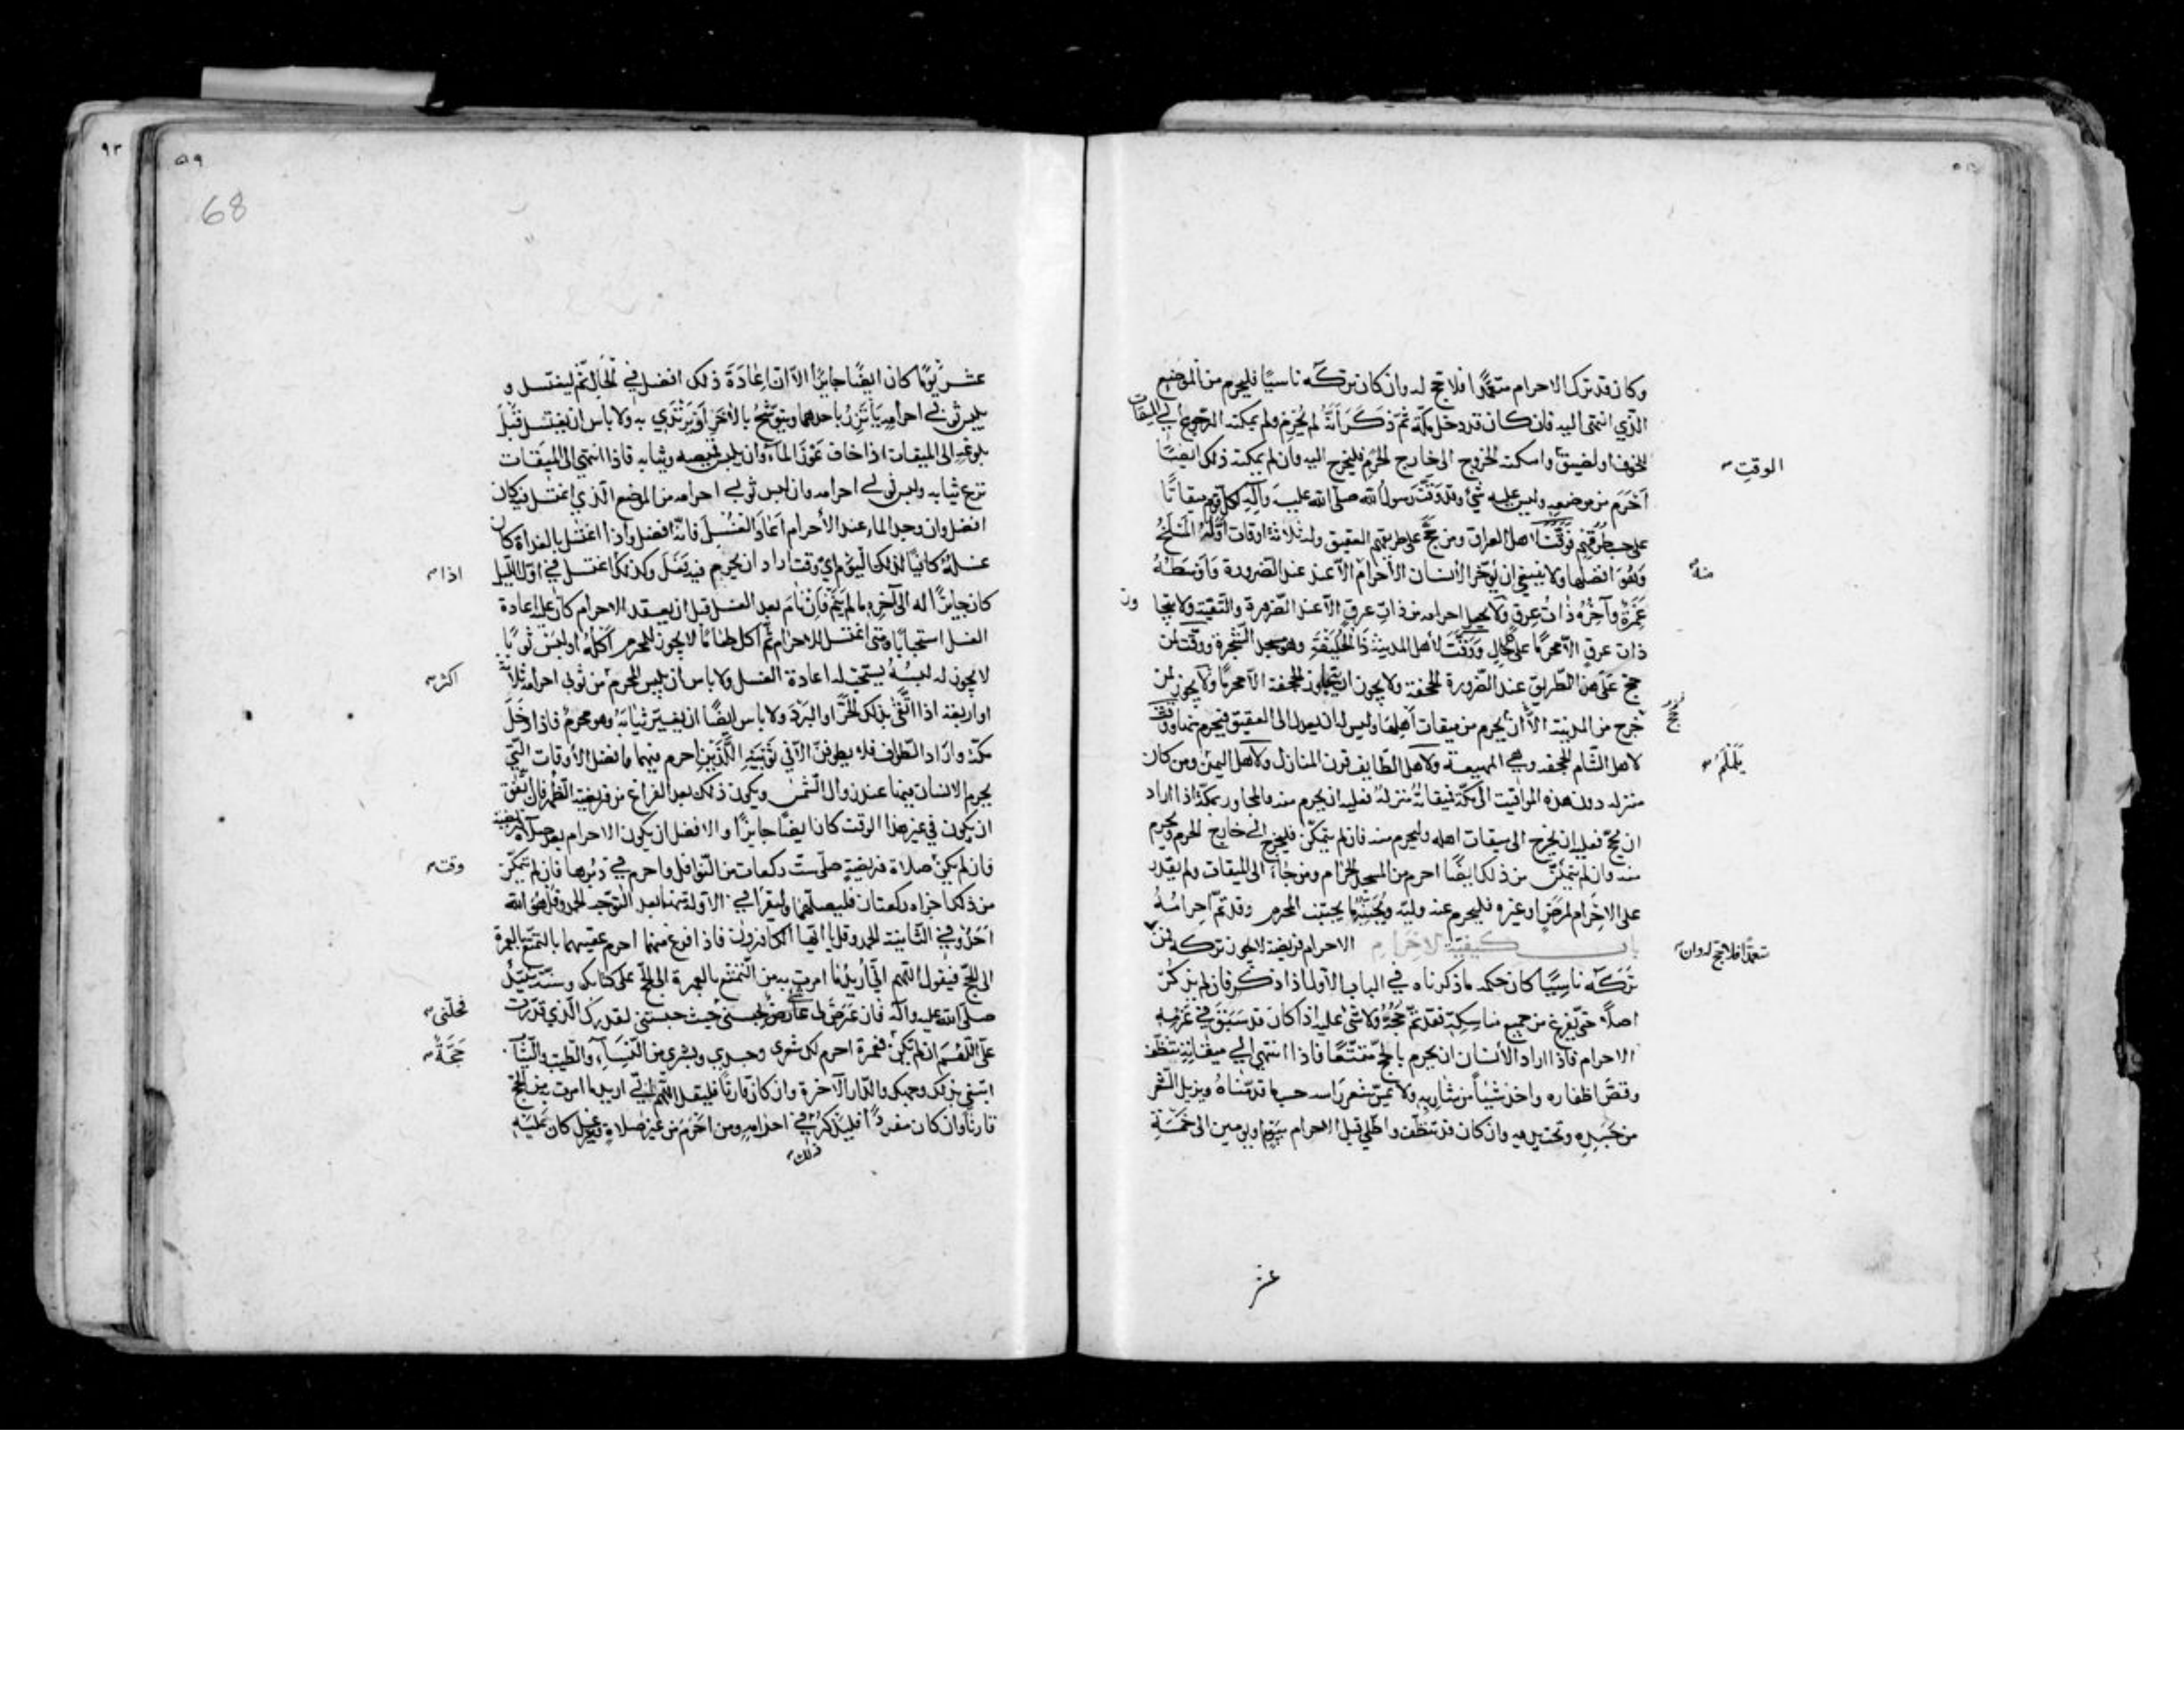 وكان قد ترك الاحرام متعمّدًا فلا حج له وان كان تركه ناسيًا فليحرم من الموضع
الّذي انتهى اليه فان كان قد دخل مكّة ثمّ ذكر أنّه لم يُحرِم ولم يمكنه الرّجوع الى الميقات
للخوف او لضيق وامكنه الخروج الى خارج الحرم فليخرج اليه وان لم يمكنه ذلك ايضًا
الوقتِ
أحْرَمَ من موضعه وليس عليه شيء وقد وَقَّتَ رسول الله صلّى الله عليه وآله لكل قوم ميقاتًا
على حسب طُرُقهم فوقّت لاهل العراق ومن حجّ على طريقهم العقيق وله ثلاثة اوقات أوّله المَسْلَخُ
وهُوَ افضلها ولا ينبغي ان يُؤخّر الانسان الأحرام الّا عند الضّرورة وَأوسَطُهُ
منهُ
غَمْرَةُ وآخرُهُ ذاتُ عِرقٍ ولا يجعل احرامه من ذات عِرقٍ الّا عند الضّرورة والتّقيّة ولا يتجا
وز
ذات عرقٍ الّا محرمًا على حالٍ ووَقَّتَ لأهل المدينة ذَا الحُلَيْفَةِ وهو مسجد الشّجرة ووقّت لمن
حجّ على هذا الطّريق عند الضّرورة الجحفة ولا يجوز ان يتجاوز الجحفة الّا محرمًا ولا يجوز لمن
خرج من المدينة الّا أن يُحرم من ميقات أهلها وليس له ان يعدل الى العقيق فيحرم منها ووقّت
لاهل الشّام الجحفه وهي المهيعة ولأهل الطّايف قرن المنازل ولأهل اليمن ومن كان
يَلَمْلَمَ
منزله دون هذه المواقيت الى مكّة فميقاتُهُ منزلهُ فعليه ان يحرم منه والمجاور بمكّة اذا اراد
ان يحجّ فعليه ان يخرج الى ميقات اهله وليحرم منه فان لم يتمكّن فليخرج الى خارج الحرم وليحرم
منه وان لم يتمكّن من ذلك ايضًا احرم من المسجد الحرام ومن جاء الى الميقات ولم يقدر
على الاحرام لمرَضٍ او غيره فليحرم عنه وليّه ويُجَنّبْهُ ما يجتنب المحرم وقد تمّ احرامُهُ
باب كيفيّة الاحرام الاحرام فريضة لا يجوز تركه فمن
متعمدًا فلا حجّ له وان
تَرَكَهُ ناسِيًا كان حكمه ما ذكرناه في الباب الأول اذا ذكر فان لم يذكُرْ
اصلًا حتّى يفرغ من جميع مناسِكِه فقد تمّ حَجُّهُ ولا شيء عليه اذا كان قد سَبَقَ في عَزمِهِ
الاحرام فاذا اراد الأنسان ان يحرم بالحجّ متمتّعًا فاذا انتهى الى ميقاته تنظّف
وقصّ اظفاره واخذ شيئًا من شاربه ولا يمسّ شعر راسه حسب ما قدّمناهُ ويزيل الشّعر
من جَسَدِه وتحت يديه وان كان قد تنظّف واطّلى قبل الاحرام بيومٍ او يومين الى خمسَةِ
عشر
٥٩
٩٣
68
عشر يومًا كان ايضًا جايزًا الّا ان اعادَةَ ذلك افضل في الحال ثمّ ليغتسل و
يلبس ثوبي احرامِهِ يَأتَزِرُ باحدهما ويتوشّحُ بالآخَرِ او يَرْتَدي به ولا باس ان يغتسل قبْلَ
بلوغه الى الميقات اذا خاف عَوَزَ الماء وان يلبس قميصه وثيابه فاذا انتهى الى الميقات
نزع ثيابه ولبس ثوبي احرامه وان لبس ثوبي احرامه من الموضع الّذي اغتسل فيه كان
افضل وان وجد الماء عند الأحرام أعاد الغُسْلَ فانّه افضل واذا اغتسل بالغداة كان
غسلهُ كافيًا لذلك اليوم ايّ وقت اراد ان يحرم فيه فَعَلَ وكذلك اغتسل في اوّل اللّيل
اذا
كان جايزًا له الى آخره ما لم يَنَمْ فَاِنْ نَامَ بعد الغسل قبل ان يعقد الاحرام كان عليه اعادة
الغسل استحبابًا ومتى اغتسل للاحرام ثمّ اكل طعامًا لا يجوز للمحرم اَكلُهُ او لبسَ ثوبًا
لا يجوز له لُبسُهُ يستحبّ له اعادة الغسل ولا باس ان يلبس المحرم من ثوبي احرامه ثلاثة
اكثر
او اربعة اذا اتّقَى بذلك الحرّ او البَرْدَ ولا باس ايضًا ان يغيّر ثيابَهُ وهو محرمٌ فاذا دخَلَ
مكّة واراد الطّواف فلا يطوفنّ الّا في ثَوْبَيْهِ الّلذين احرم فيهما وافضل الأوقات الّتي
يحرم الانسان فيها عند زوال الشّمس ويكون ذلك بعد الفراغ من فريضة الظّهر فان اتّفَقَ
ان يكون في غير هذا الوقت كان ايضًا جايزًا والافضل ان يكون الاحرام بعد صلاة فريضة
فان لم يكن صلاة فريضةٍ صلّى ستّ ركعات من النّوافل واحرم في دبرها فان لم يتمكّن
وقت
من ذلك اجزاه ركعتان فليصلّهما وليقرأ في الأولة منهما بعد التّوجّه الحمد وقل هو الله
احَدٌ وفي الثّانية الحمد وقل يا ايّها الكافرون فاذا فرغ منهما احرم عقيبهما بالتّمتّع بالعمرة
الى الحجّ فيقول اللّهم انّي أريد ما امرت به من التّمتّع بالعمرة الى الحجّ على كتابك وسُنّة نبيّك
صلّى الله عليه وآله فان عَرَضَ لي عَارضٌ يحبسني حيث حبستني لقدرك الّذي قدّرت
فحلّني
عَلَيَّ اللّهُمّ ان لم تكن فعمرة احرم لك شعري وجسدي وبشري من النّسآء والطّيب والثّياب
حَجّةً
ابتغي بذلك وجهك والدّار الآخرة وان كان قارنًا فليقل اللّهمّ انّي اريد ما امرت به من الحجّ
قارنًا وان كان مفردًا فليذكر في احرامه ومن أحْرَمَ من غير صلاةٍ وغسل كان عَلَيْهِ
ذلك